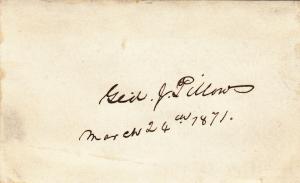 Gid. J. Pillow
March 24th 1871.